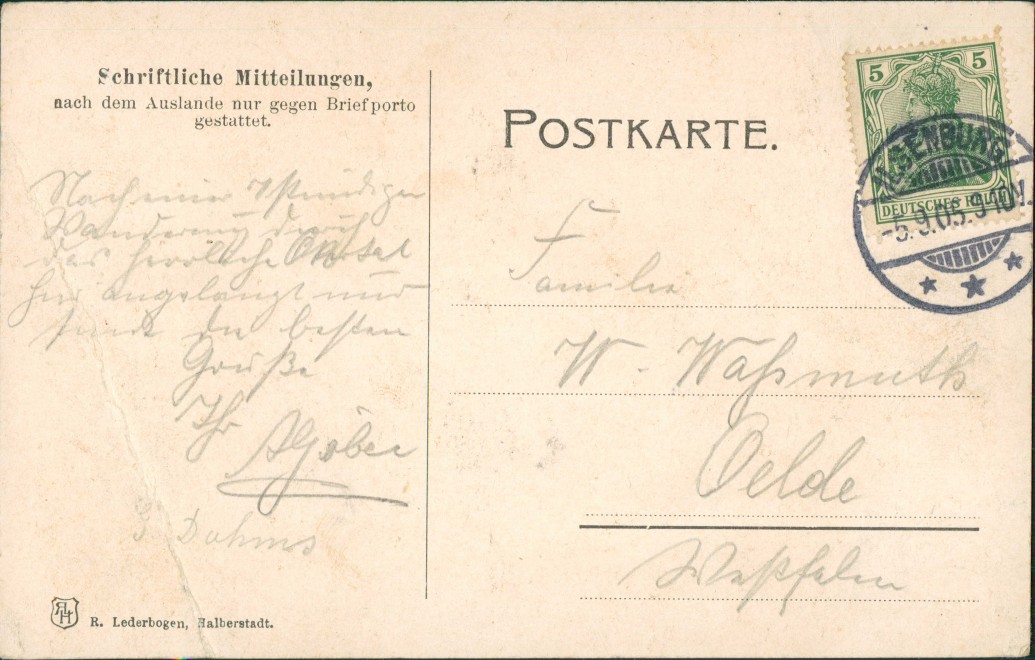 Schriftliche Mitteilungen,
nach dem Auslande nur gegen Briefporto
gestattet.
Nach einer 7stündigen
Wanderung durch
das herrliche Okertal
hier angelangt und
sende die besten
Grüße
Ihr
G Dahms
R. Lederbogen, Halberstadt.
POSTKARTE.
5 5
DEUTSCHES REICH
ILSENBURG
-5.9.05.9-10V.
Familie
W. Waßmuth
Oelde
Westfalen